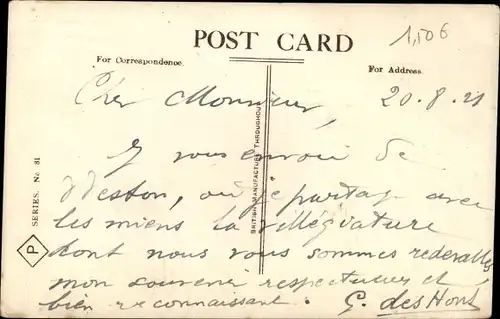 1,50€
POST CARD
For Correspondence.
For Address.
20.8.21
Cher Monsieur,
J vous envoie de
Weston, où je partage avec
les miens la villégiature
dont nous vous sommes redevables
mon souvenir respectueux et
bien reconnaissant. G. des Hont
BRITISH MANUFACTURE THROUGHOUT
SERIES. No. 81
P